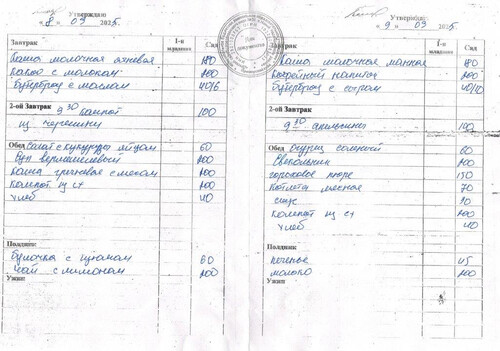 Утверждаю
8 03 2025
1-я младшая
Сад
Завтрак
Каша молочная ячневая 180
Какао с молоком 200
Бутерброд с маслом 40/6
2-ой Завтрак
9 30 компот 100
из черешни
Обед Салат с кукурузы яйцом 60
Суп вермишелевый 200
Каша гречневая с мясом 200
Компот из сх 200
хлеб 40
Полдник
Булочка с изюмом 60
Чай с лимоном 200
Ужин
Для документов
Утверждаю
9 03 2025
1-я младшая
Сад
Завтрак
Каша молочная манная 180
Кофейный напиток 200
Бутерброд с сыром 40/10
2-ой Завтрак
9 30 апельсины 100
Обед Огурец соленый 60
Свекольник 200
гороховое пюре 150
Котлета мясная 70
соус
Компот из сх 200
хлеб 40
Полдник
печенье 45
молоко 200
Ужин